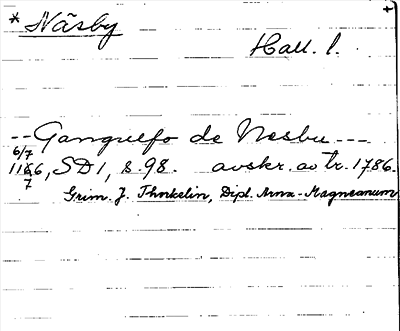 * Näsby
Hall. l.
-- Gangulfo de Nesbu ---
6/7
1166, SD1, s. 98. avskr. av tr. 1786.
7
Grim. J. Thorkelin, Dipl. Arna-Magnæanum